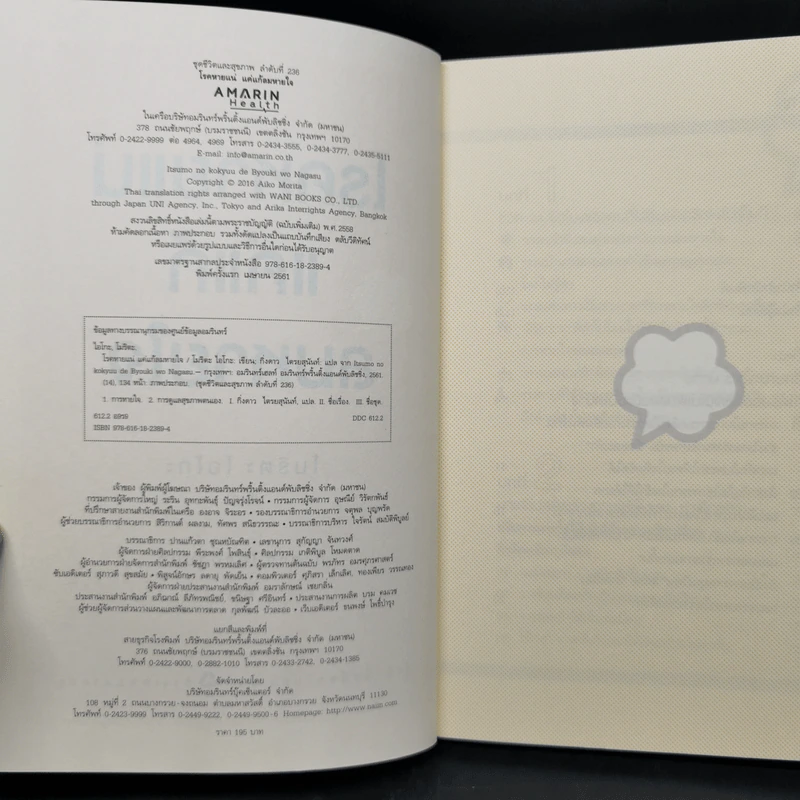 ชุดชีวิตและสุขภาพ ลำดับที่ 236
โรคหายแน่ แค่แก้ลมหายใจ
AMARIN
Health
ในเครือบริษัทอมรินทร์พริ้นติ้งแอนด์พับลิชชิ่ง จำกัด (มหาชน)
378 ถนนชัยพฤกษ์ (บรมราชชนนี) เขตตลิ่งชัน กรุงเทพฯ 10170
โทรศัพท์ 0-2422-9999 ต่อ 4964, 4969 โทรสาร 0-2434-3555, 0-2434-3777, 0-2435-5111
E-mail: info@amarin.co.th
Itsumo no kokyuu de Byouki wo Nagasu
Copyright © 2016 Aiko Morita
Thai translation rights arranged with WANI BOOKS CO., LTD.
through Japan UNI Agency, Inc., Tokyo and Arika Interrights Agency, Bangkok
สงวนลิขสิทธิ์หนังสือเล่มนี้ตามพระราชบัญญัติ (ฉบับเพิ่มเติม) พ.ศ. 2558
ห้ามคัดลอกเนื้อหา ภาพประกอบ รวมทั้งดัดแปลงเป็นแถบบันทึกเสียง ตลับวีดิทัศน์
หรือเผยแพร่ด้วยรูปแบบและวิธีการอื่นใดก่อนได้รับอนุญาต
เลขมาตรฐานสากลประจำหนังสือ 978-616-18-2389-4
พิมพ์ครั้งแรก เมษายน 2561
ข้อมูลทางบรรณานุกรมของศูนย์ข้อมูลอมรินทร์
ไอโกะ, โมริตะ.
โรคหายแน่ แค่แก้ลมหายใจ / โมริตะ ไอโกะ: เขียน; กิ่งดาว ไตรยสุนันท์: แปล จาก Itsumo no
kokyuu de Byouki wo Nagasu.-- กรุงเทพฯ: อมรินทร์เฮลท์ อมรินทร์พริ้นติ้งแอนด์พับลิชชิ่ง, 2561.
(14), 134 หน้า: ภาพประกอบ. (ชุดชีวิตและสุขภาพ ลำดับที่ 236)
1. การหายใจ. 2. การดูแลสุขภาพตนเอง. I. กิ่งดาว ไตรยสุนันท์, แปล. II. ชื่อเรื่อง. III. ชื่อชุด.
612.2 DDC 612.2
ISBN 978-616-18-2389-4
เจ้าของ ผู้พิมพ์ผู้โฆษณา บริษัทอมรินทร์พริ้นติ้งแอนด์พับลิชชิ่ง จำกัด (มหาชน)
กรรมการผู้จัดการใหญ่ ระริน อุทกะพันธุ์ ปัญจรุ่งโรจน์ • กรรมการผู้จัดการ อุษณีย์ วิรัตกพันธ์
ที่ปรึกษาสายงานสำนักพิมพ์ในเครือ องอาจ จิระอร • รองบรรณาธิการอำนวยการ จตุพล บุญพรัด
ผู้ช่วยบรรณาธิการอำนวยการ สิริกานต์ ผลงาม, ทัศพร สนิธวรรณะ • บรรณาธิการบริหาร ไจรัตน์ สมบัติพิบูลย์
บรรณาธิการ ปานแก้วตา ชุณหบัณฑิต • เลขานุการ สุกัญญา จันทวงศ์
ผู้จัดการฝ่ายศิลปกรรม พีระพงศ์ โพสินธุ์ • ศิลปกรรม เกติพิบูล โหมดตาด
ผู้อำนวยการฝ่ายจัดการสำนักพิมพ์ ชัชฎา พรหมเลิศ • ผู้ตรวจทานต้นฉบับ พรภัทร อมรศุภรศาสตร์
ซับเอดิเตอร์ สุภาวดี สุขสมัย • พิสูจน์อักษร ลดายุ พัดเย็น • คอมพิวเตอร์ ศุภิสรา เล็กเลิศ, ทองเพียร วรรณทอง
ผู้จัดการฝ่ายประสานงานสำนักพิมพ์ อมราลักษณ์ เชยกลิ่น
ประสานงานสำนักพิมพ์ อภิณาณ์ ลีภัทรพณิชย์, ชนิษฐา ศรีอินทร์ • ประสานงานการผลิต บรม คมเวช
ผู้ช่วยผู้จัดการส่วนวางแผนและพัฒนาการตลาด กุลพัฒนี บัวละออ • เว็บเอดิเตอร์ ธนพงษ์ โพธิ์บำรุง
แยกสีและพิมพ์ที่
สายธุรกิจโรงพิมพ์ บริษัทอมรินทร์พริ้นติ้งแอนด์พับลิชชิ่ง จำกัด (มหาชน)
376 ถนนชัยพฤกษ์ (บรมราชชนนี) เขตตลิ่งชัน กรุงเทพฯ 10170
โทรศัพท์ 0-2422-9000, 0-2882-1010 โทรสาร 0-2433-2742, 0-2434-1385
จัดจำหน่ายโดย
บริษัทอมรินทร์บุ๊คเซ็นเตอร์ จำกัด
108 หมู่ที่ 2 ถนนบางกรวย-จงถนอม ตำบลมหาสวัสดิ์ อำเภอบางกรวย จังหวัดนนทบุรี 11130
โทรศัพท์ 0-2423-9999 โทรสาร 0-2449-9222, 0-2449-9500-6 Homepage: http://www.naiin.com
ราคา 195 บาท